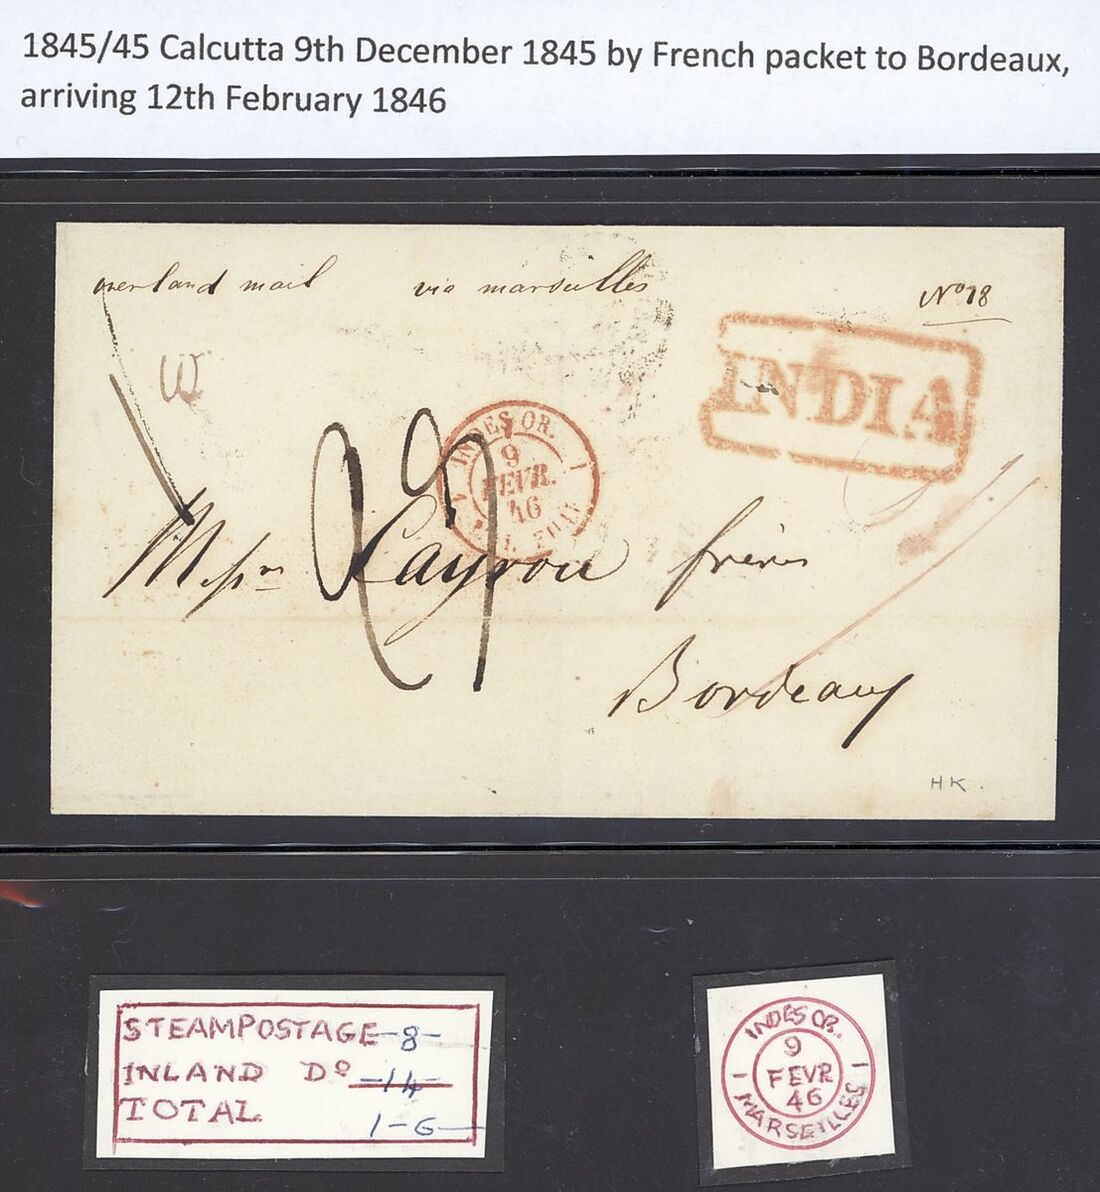 1845/45 Calcutta 9th December 1845 by French packet to Bordeaux,
arriving 12th February 1846
overland mail via marseilles
No 18
INDIA
INDES OR.
9
FEVR.
46
frères
Bordeaux
HK.
STEAMPOSTAGE -8-
INLAND Do -14-
TOTAL 1-6-
INDES OR.
9
FEVR
46
MARSEILLES